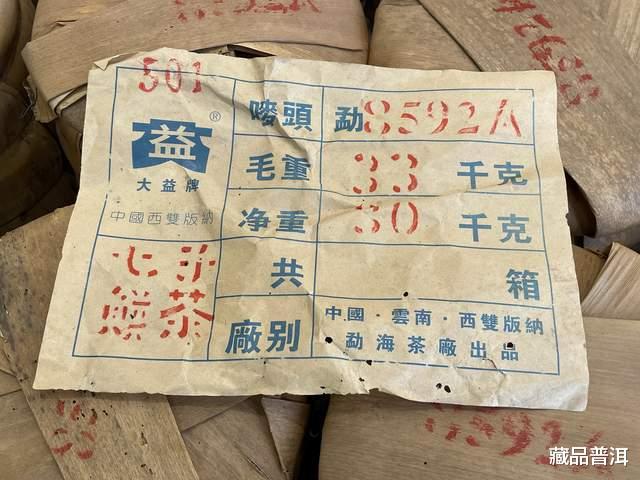 501
益®
大益牌
中國西雙版納
嘜頭 勐8592A
毛重 33 千克
净重 30 千克
共 箱
七子
餅茶
廠别
中國·雲南·西雙版納
勐海茶廠出品
藏品普洱